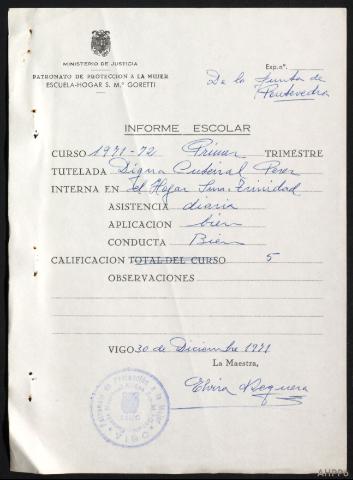 MINISTERIO DE JUSTICIA
PATRONATO DE PROTECCION A LA MUJER
ESCUELA-HOGAR S. M.ª GORETTI
Exp. nº.
De la Junta de
Pontevedra
INFORME ESCOLAR
CURSO 1971-72 Primer TRIMESTRE
TUTELADA Digna Perez
INTERNA EN el Hogar Sma. Trinidad
ASISTENCIA diaria
APLICACION bien
CONDUCTA Bien
CALIFICACION TOTAL DEL CURSO 5
OBSERVACIONES
VIGO 30 de Diciembre 1971
La Maestra,
Elvira
Patronato de Protección a la Mujer
VIGO
AHPPO